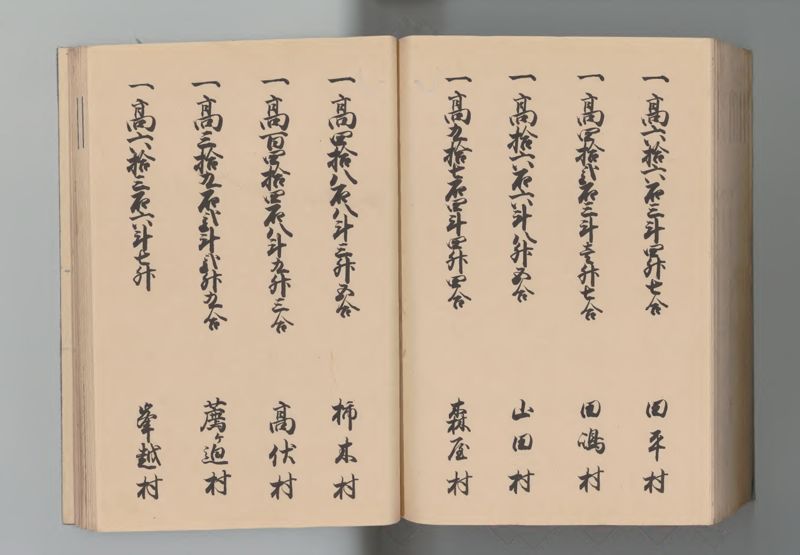 一高六拾六石三斗四升七合 田平村
一高四拾弐石三斗壱升七合 田嶋村
一高拾六石六斗八升五合 山田村
一高九拾七石四斗四升四合 森屋村
一高四拾八石八斗三升五合 柿木村
一高百四拾四石八斗九升三合 高伏村
一高三拾九石弐斗弐升九合 薦ヶ迫村
一高六拾三石六斗七升 峯越村